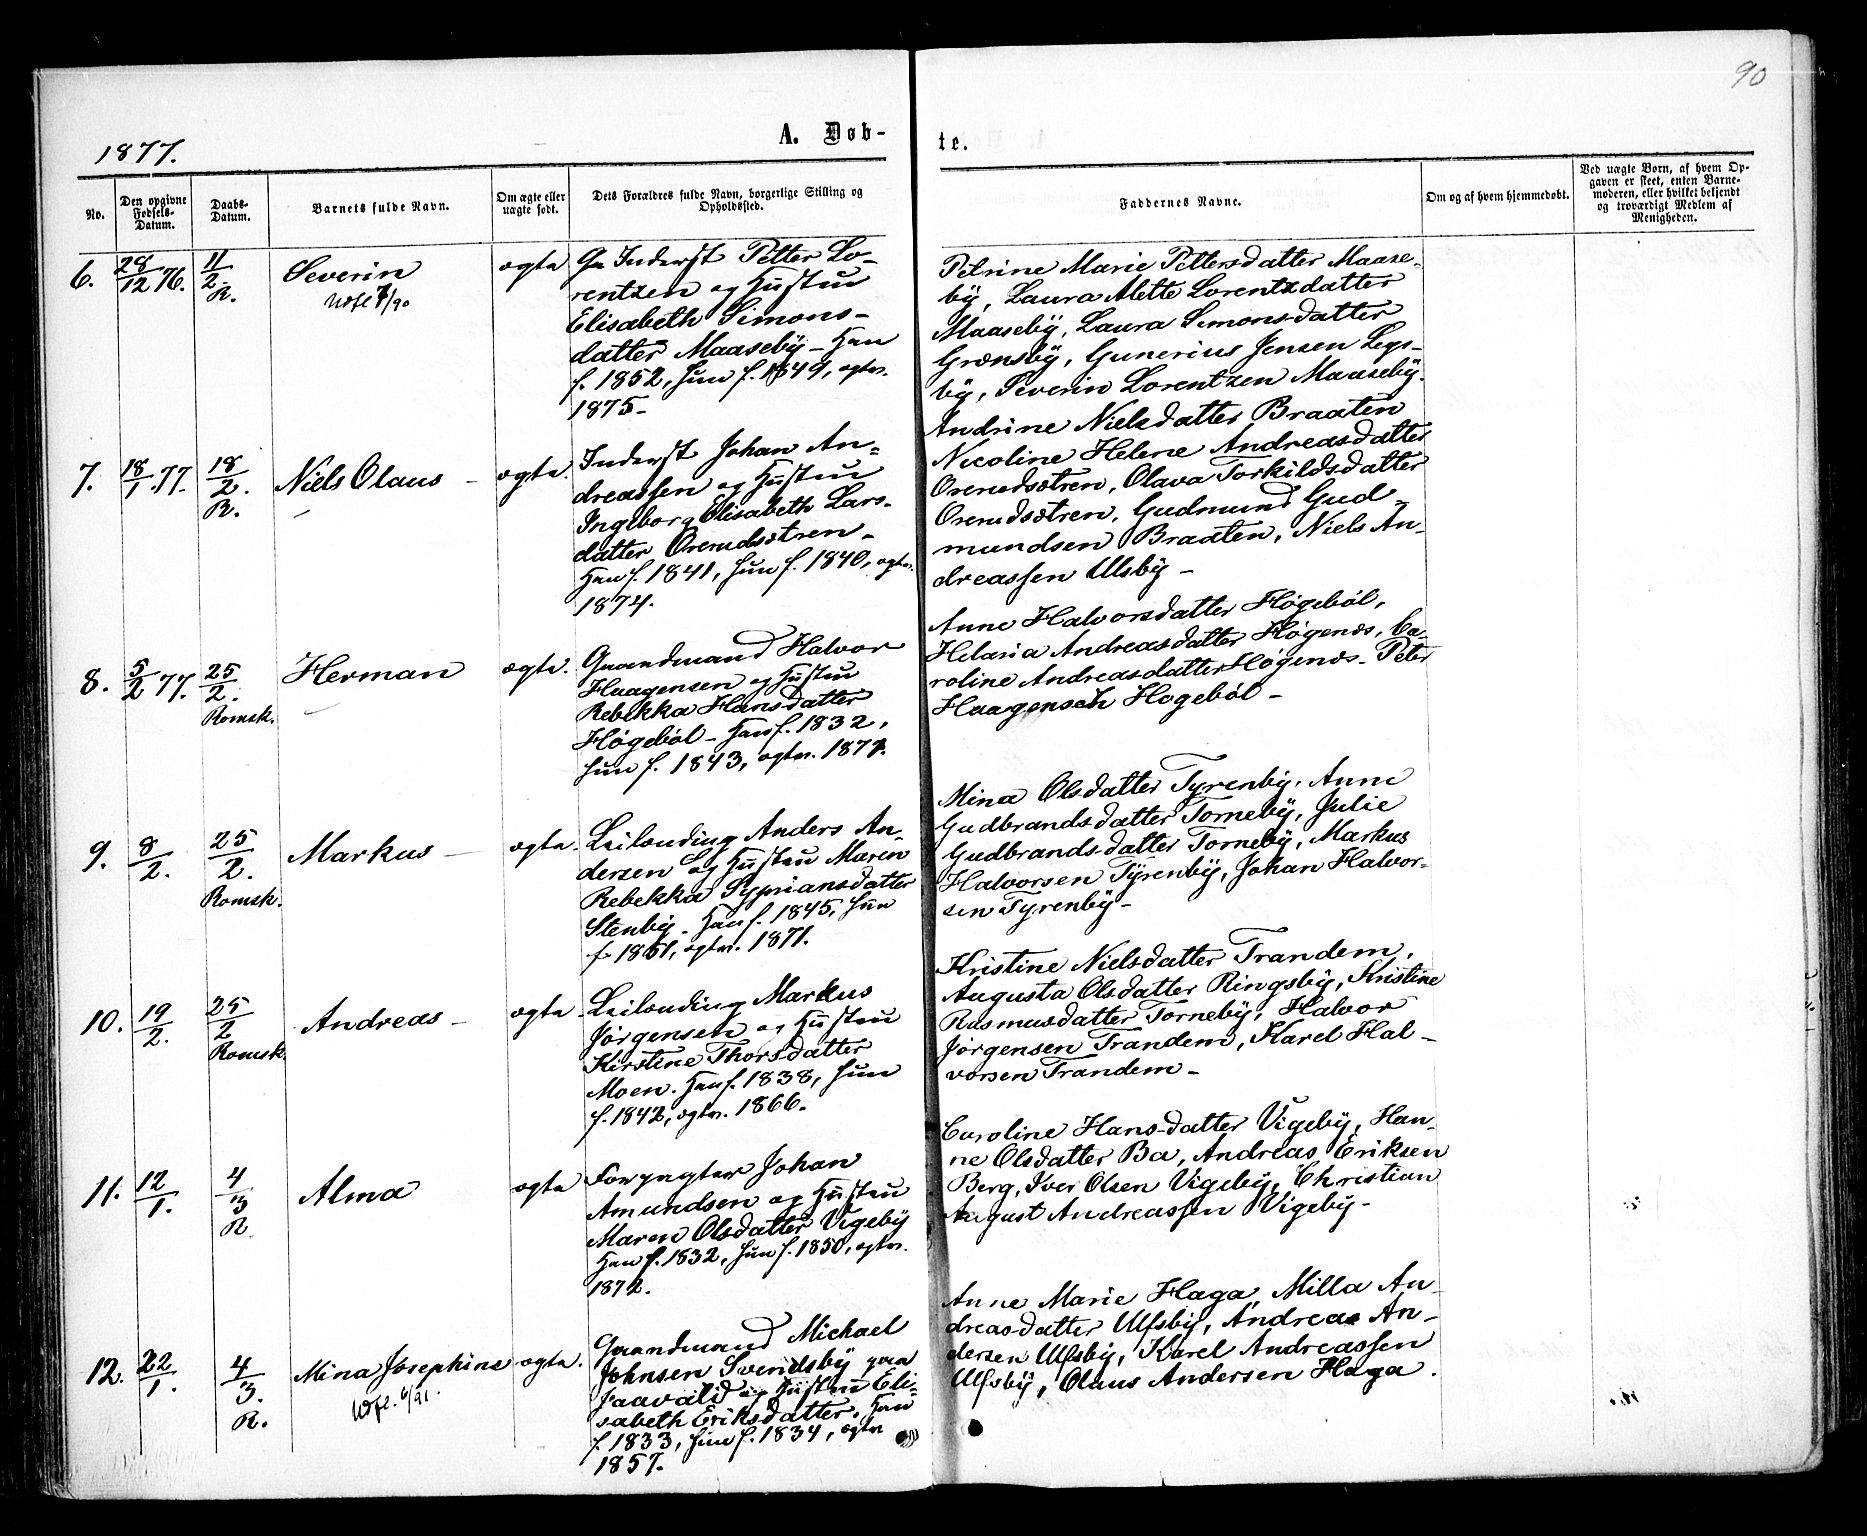 90
1877.
A. Døb-
te.
No.
Den opgivne
Fødsels-
Datum.
Daabs-
Datum.
Barnets fulde Navn.
Om ægte eller
uægte født.
Dets Forældres fulde Navn, borgerlige Stilling og
Opholdssted.
Faddernes Navne.
Om og af hvem hjemmedøbt.
Ved uægte Børn, af hvem Op-
gaven er skeet, enten Barne-
moderen, eller hvilket bekjendt
og troværdigt Medlem af
Menigheden.
6. 28/12 76. 11/2. R.
Severin
7/90
ægte
Inderst Petter Lo-
rentzen og Hustru
Elisabeth Simons-
datter Maaseby – Han
f. 1852, Hun f. 1849, ægtev.
1875 –
Petrine Marie Pettersdatter Maase-
by, Laura Mette Lorentzdatter
Maaseby, Laura Simonsdatter
Grønsby, Gunerius Jensen Legs-
by, Severin Lorentzen Maaseby.
7. 18/1 77. 18/2. R.
Niels Olaus –
ægte.
Inderst Johan An-
dreassen og Hustru
Ingeborg Elisabeth Lars-
datter Orerudsætren –
Han f. 1841, Hun f. 1840, ægtev.
1874.
Andrine Nielsdatter Braaten
Nicoline Helene Andreasdatter
Orerudsætren, Olava Torkildsdatter
Orerudsætren, Gudmund Gud-
mundsen Braaten, Niels An-
dreassen Ulsby –
8. 5/2 77. 25/2. Romsk.
Herman
ægte.
Gaardmand Halvor
Haagensen og Hustru
Rebekka Hansdatter
Høgebøl – Han f. 1832,
Hun f. 1843, ægtev. 1871.
Anne Halvorsdatter Høgebøl,
Helaria Andreasdatter Høgenæs, Ca-
roline Andreasdatter Høgenæs – Peter
Haagensen Hogebøl –
9. 8/2. 25/2. Romsk.
Markus –
ægte.
Leilænding Anders An-
dersen og Hustru Maren
Rebekka Syprians datter
Stenby – Han f. 1845, Hun
f. 1851, ægtev. 1871.
Mina Olsdatter Tyrenby, Anne
Gudbrandsdatter Torneby, Julie
Gudbrandsdatter Torneby, Markus
Halvorsen Tyrenby, Johan Halvor-
sen Tyrenby –
10. 19/2. 25/2. Romsk.
Andreas –
ægte.
Leilænding Markus
Jørgensen og Hustru
Kirstine Thorsdatter
Moen. Han f. 1838, Hun
f. 1842, ægtev. 1866.
Kristine Nielsdatter Trandem,
Augusta Olsdatter Ringsby, Kristine
Rasmusdatter Torneby, Halvor
Jørgensen Trandem, Karel Hal-
vorsen Trandem –
11. 12/1. 4/3 R.
Alma
ægte
Forpagter Johan
Amundsen og Hustru
Maren Olsdatter Vigeby
Han f. 1832, Hun f. 1850, ægtev.
1872.
Caroline Hansdatter Vigeby, Han-
ne Olsdatter Ba, Andreas Eriksen
Berg, Iver Olsen Vigeby, Christian
August Andreassen Vigeby –
12. 22/1. 4/3. R.
Mina Josephine
6/91.
ægte.
Gaardmand Michael
Johnsen Sveridsby paa
Jaavald og Hustru Eli-
sabeth Eriksdatter. Han
f. 1833, Hun f. 1834, ægtev
1857.
Anne Marie Haga, Milla An-
dreasdatter Ulfsby, Andreas An-
dersen Ulfsby, Karel Andreassen
Ulfsby, Olaus Andersen Haga.